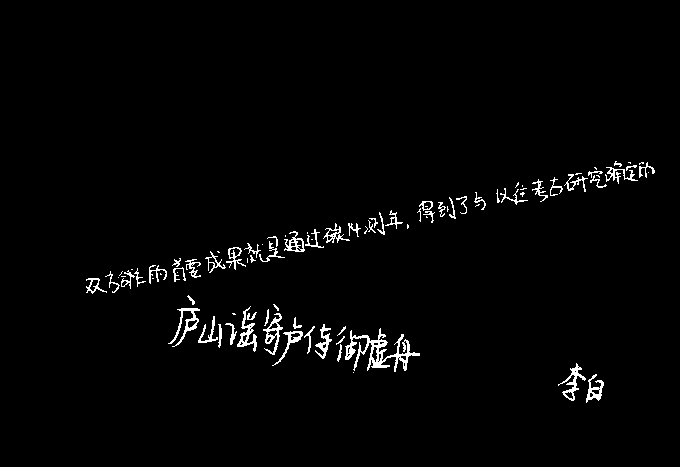 双方合作的首要成果就是通过碳14测年,得到了与以往考古研究确定的
庐山谣寄卢侍御虚舟
李白